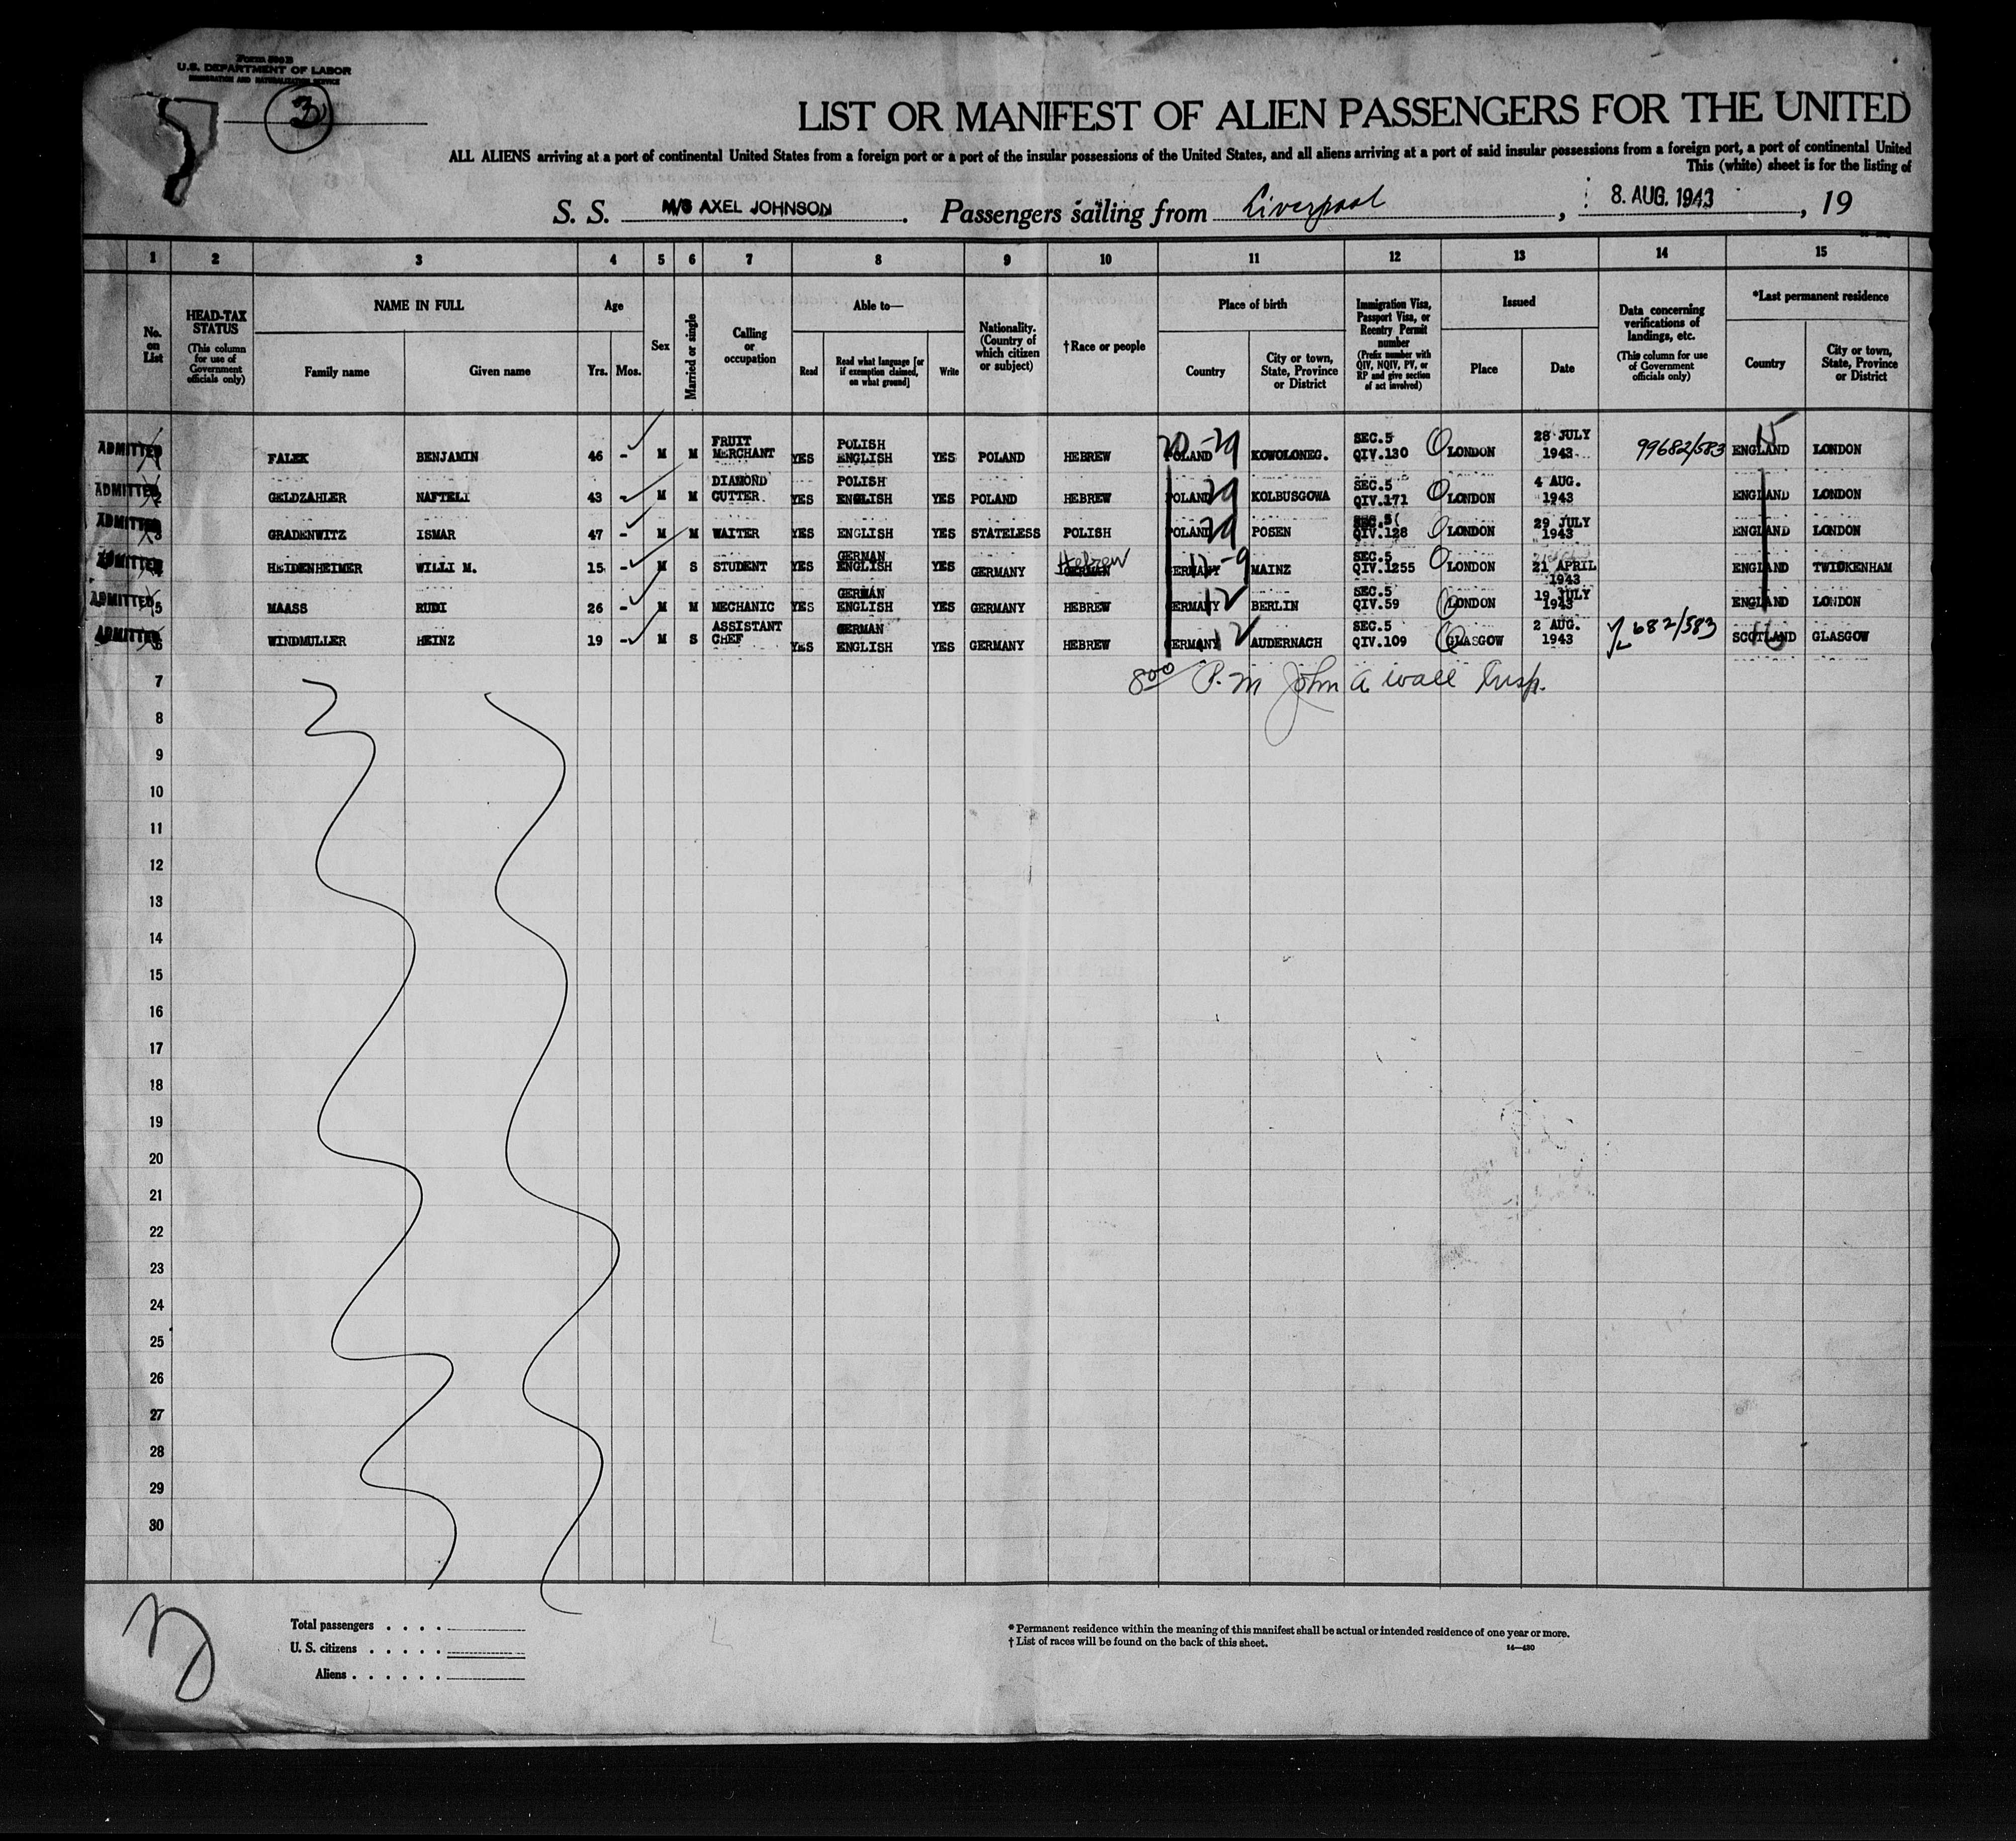 Form 500 B
U.S. DEPARTMENT OF LABOR
IMMIGRATION AND NATURALIZATION SERVICE
3
LIST OR MANIFEST OF ALIEN PASSENGERS FOR THE UNITED
ALL ALIENS arriving at a port of continental United States from a foreign port or a port of the insular possessions of the United States, and all aliens arriving at a port of said insular possessions from a foreign port, a port of continental United
This (white) sheet is for the listing of
S. S. M/S AXEL JOHNSON. Passengers sailing from Liverpool, 8. AUG. 1943, 19
1 2 3 4 5 6 7 8 9 10 11 12 13 14 15
No. on List
HEAD-TAX STATUS (This column for use of Government officials only)
NAME IN FULL Family name Given name
Age Yrs. Mos.
Sex
Married or single
Calling or occupation
Able to— Read Read what language [or if exemption claimed, on what ground] Write
Nationality. (Country of which citizen or subject)
†Race or people
Place of birth Country City or town, State, Province or District
Immigration Visa, Passport Visa, or Reentry Permit number (Prefix number with QIV, NQIV, PV, or RP and give section of act involved)
Issued Place Date
Data concerning verifications of landings, etc. (This column for use of Government officials only)
*Last permanent residence Country City or town, State, Province or District
ADMITTED FALEK BENJAMIN 46 - M M FRUIT MERCHANT YES POLISH ENGLISH YES POLAND HEBREW POLAND KOWOLONEG. SEC.5 QIV.130 LONDON 28 JULY 1943 99682/583 ENGLAND LONDON
ADMITTED 2 GELDZAHLER NAFTELI 43 - M M DIAMOND CUTTER YES POLISH ENGLISH YES POLAND HEBREW POLAND KOLBUSGOWA SEC.5 QIV.171 LONDON 4 AUG. 1943 ENGLAND LONDON
ADMITTED 3 GRADENWITZ ISMAR 47 - M M WAITER YES ENGLISH YES STATELESS POLISH POLAND POSEN SEC.5 QIV.128 LONDON 29 JULY 1943 ENGLAND LONDON
ADMITTED HEIDENHEIMER WILLI M. 15 - M S STUDENT YES GERMAN ENGLISH YES GERMANY Hebrew GERMAN GERMANY MAINZ SEC.5 QIV.1255 LONDON 21 APRIL 1943 ENGLAND TWICKENHAM
ADMITTED 5 MAASS RUDI 26 - M M MECHANIC YES GERMAN ENGLISH YES GERMANY HEBREW GERMANY BERLIN SEC.5 QIV.59 LONDON 19 JULY 1943 ENGLAND LONDON
ADMITTED 6 WINDMULLER HEINZ 19 - M S ASSISTANT CHEF YES GERMAN ENGLISH YES GERMANY HEBREW GERMANY AUDERNACH SEC.5 QIV.109 GLASGOW 2 AUG. 1943 682/583 SCOTLAND GLASGOW
7 800 P.M John A wall Insp.
8
9
10
11
12
13
14
15
16
17
18
19
20
21
22
23
24
25
26
27
28
29
30
Total passengers . . . .
U. S. citizens . . . . .
Aliens . . . . . .
* Permanent residence within the meaning of this manifest shall be actual or intended residence of one year or more.
† List of races will be found on the back of this sheet.
14—430